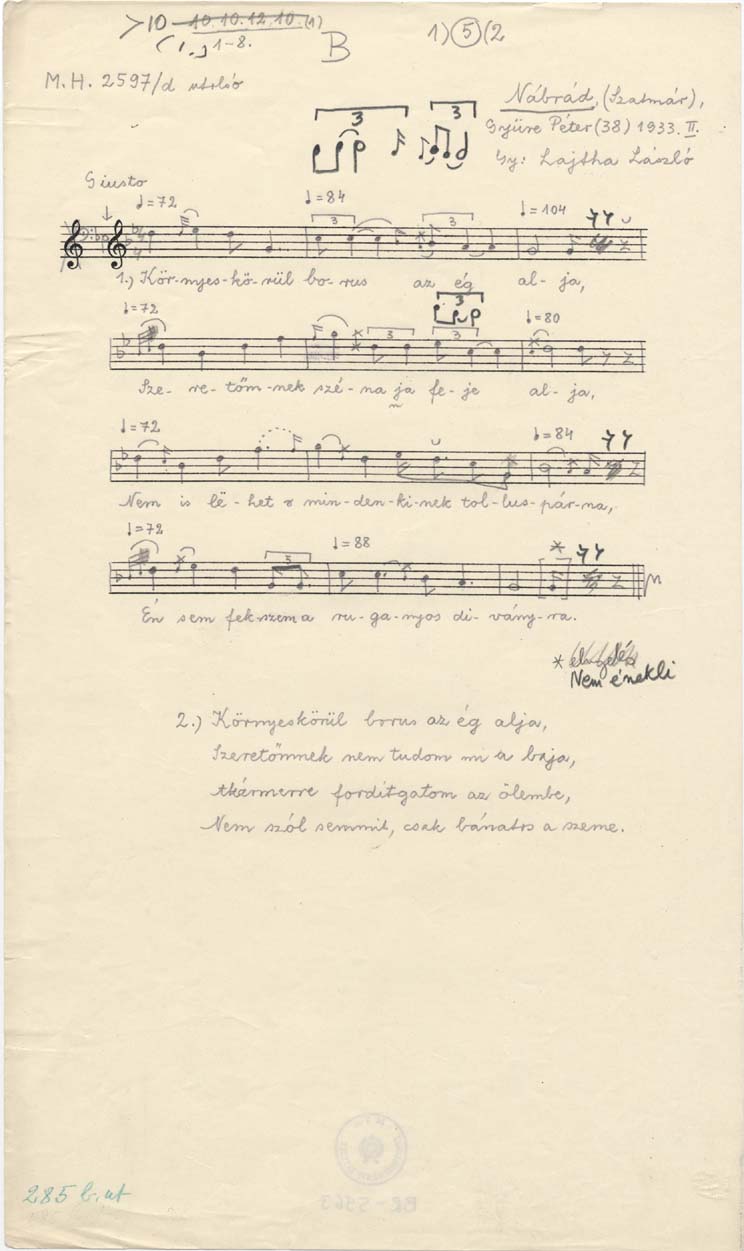 >10 10.10.12.10.(1)
1)(5)(2
(1.) 1-8.
B
M.H. 2597/d utolsó
Nábrád, (Szatmár),
Gyüre Péter (38) 1933. II.
Gy: Lajtha László
3 3
Giusto
♩=72 ♩=84 ♩=104
3 3
1.) Kör-nyes-kö-rül bo-rus az ég al-ja,
♩=72 3 ♩=80
3 3
Sze-re-tőm-nek szé-na ja fe-je al-ja,
♩=72 ♩=84
Nem is lë-het a min-den-ki-nek tol-lus-pár-na,
♩=72 3 ♩=88 *
Én sem fek-szem a ru-ga-nyos di-vány-ra.
*
Nem énekli
2.) Környeskörül borus az ég alja,
Szeretőmnek nem tudom mi a baja,
Akármerre fordítgatom az ölembe,
Nem szól semmit, csak bánatos a szeme.
285 b. ut